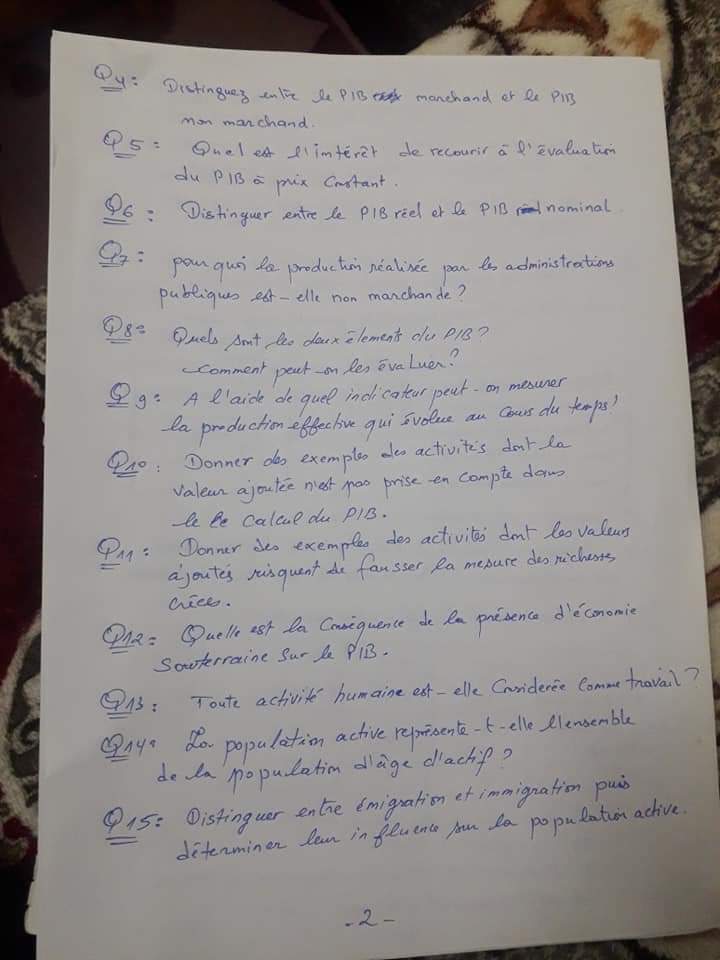 Q4: Distinguez entre le PIB marchand et le PIB
non marchand.
Q5: Quel est l'intérêt de recourir à l'évaluation
du PIB à prix Constant.
Q6: Distinguer entre le PIB réel et le PIB nominal
Q7: pourquoi la production réalisée par les administrations
publiques est-elle non marchande?
Q8: Quels sont les deux élements du PIB?
Comment peut-on les évaluer?
Q9: A l'aide de quel indicateur peut-on mesurer
la production effective qui évolue au cours du temps?
Q10: Donner des exemples des activités dont la
valeur ajoutée n'est pas prise en compte dans
le calcul du PIB.
Q11: Donner des exemples des activités dont les valeurs
ajoutés risquent de fausser la mesure des richesses
créées.
Q12: Quelle est la Conséquence de la présence d'économie
Souterraine Sur le PIB.
Q13: Toute activité humaine est-elle Considerée Comme travail?
Q14: La population active représente-t-elle l'ensemble
de la population d'âge d'actif?
Q15: Distinguer entre émigration et immigration puis
déterminer leur influence sur la population active.
-2-